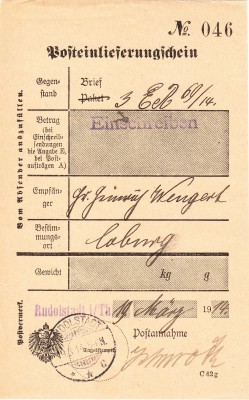 No. 046
Posteinlieferungschein
Vom Absender auszufüllen.
Gegen-
stand
Brief
Paket
3 EcR 60/14.
Betrag
(bei
Einschreib-
sendungen
die Angabe E,
bei Post-
aufträgen A)
Einschreiben
Empfän-
ger
Hr. Heinrich Wengert
Bestim-
mungs-
ort
Coburg
Gewicht
kg
g
Rudolstadt i/Th
19 März 1914.
Postvermerk.
RUDOLSTADT
* * C
Tagesstempel
Postannahme
C 62 g